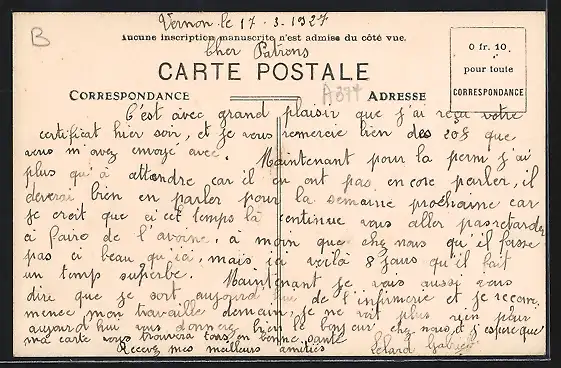 B
Vernon le 17-3-1927
Aucune inscription manuscrite n'est admise du côté vue.
Cher Patrons
CARTE POSTALE
0 fr. 10
pour toute
CORRESPONDANCE
CORRESPONDANCE
A394
ADRESSE
C'est avec grand plaisir que j'ai reçu votre
certificat hier soir, et je vous remercie bien des 20f que
vous m'avez envoyé avec. Maintenant pour la perm j'ai
plus qu'à attendre car il en ont pas encore parler, il
deverai bien en parler pour la semaine prochaine car
je croit que ci cet temps là continue vous aller pas retarder
à faire de l'avoine, à moin que chez nous qu'il fasse
pas ci beau qu'ici, mais ici voilà 8 jours qu'il fait
un temps superbe. Maintenant je vais aussi vous
dire que je sort aujourd'hui de l'infirmerie et je recom
mence mon travaille demain, je ne voit plus rien pour
aujourd'hui vous donnerez bien le bonjour chez nous, et j'espère que
ma carte vous trouvera tous en bonne santé
Recevez mes meilleurs amitiés Gabriel